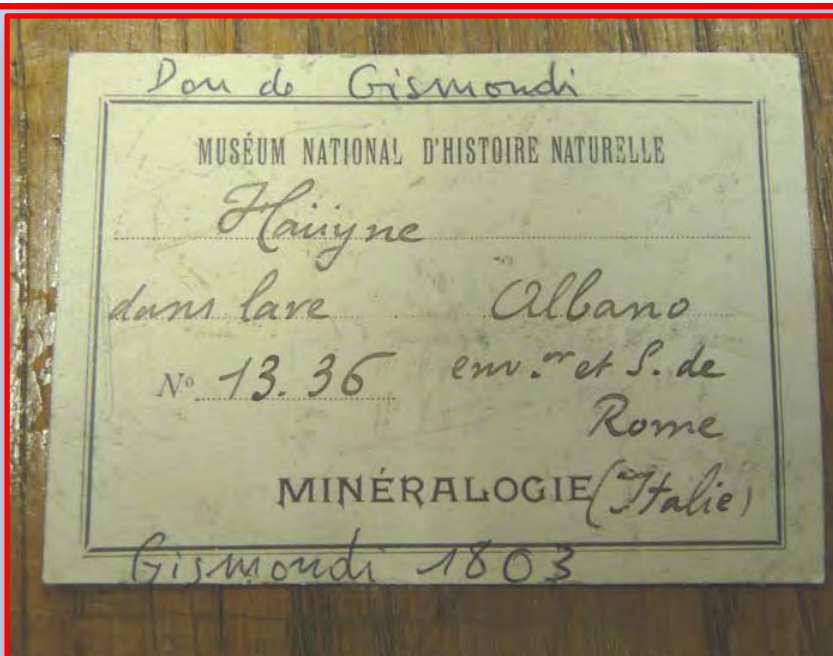 Don de Gismondi
MUSÉUM NATIONAL D'HISTOIRE NATURELLE
Haüyne
dans lave Albano
Nº 13.36 env.ᵒⁿ et S. de
Rome
MINÉRALOGIE (Italie)
Gismondi 1803